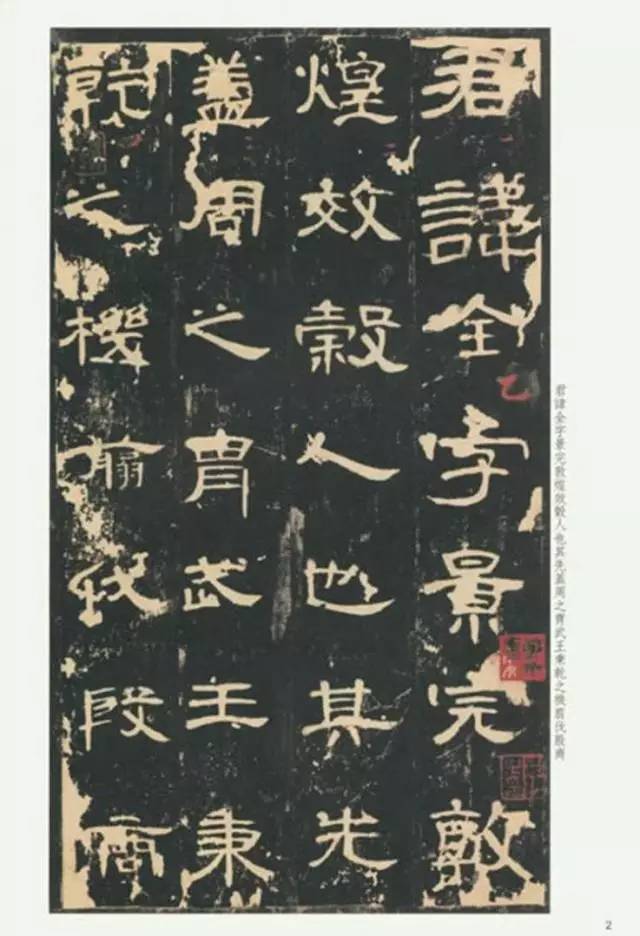 君諱全字景完敦
煌效穀人也其先
蓋周之胄武王秉
乾之機翦伐殷商
君諱全字景完敦煌效穀人也其先蓋周之胄武王秉乾之機翦伐殷商
2